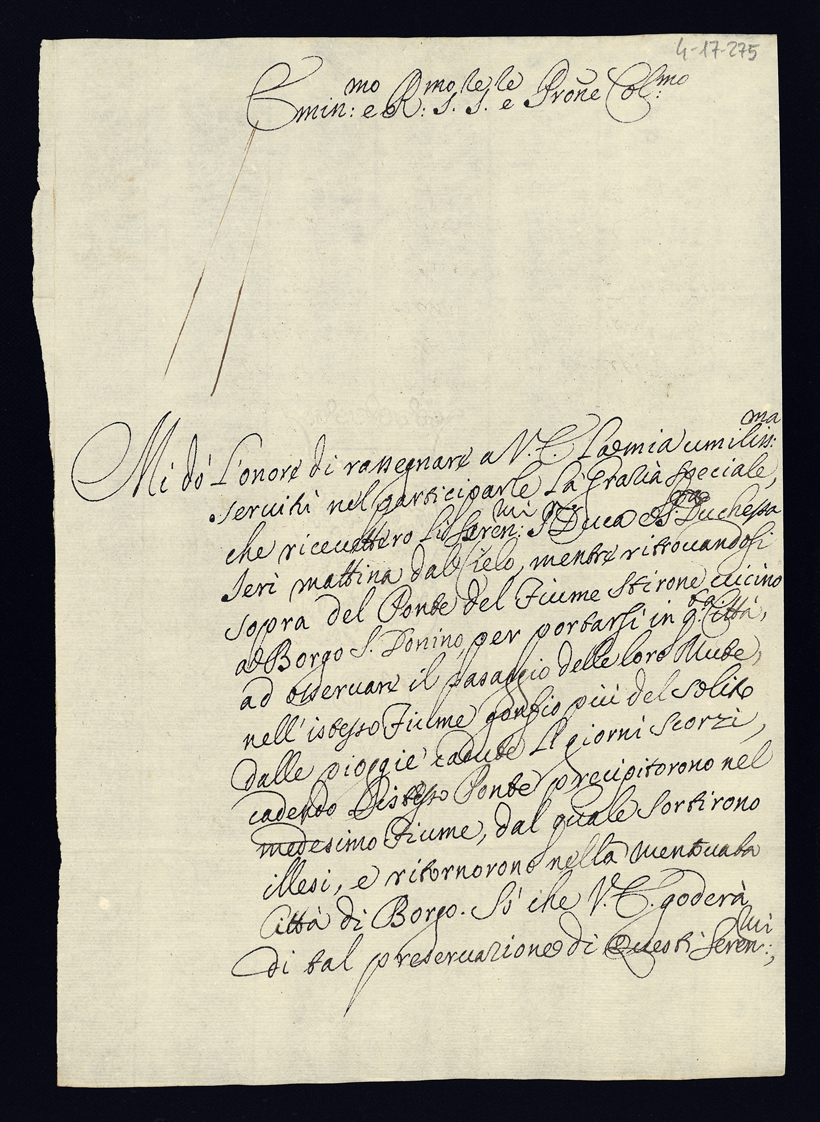 4-17-275
Emin:mo e R:mo S.le S.le e Prone Col:mo
Mi dò l'onore di rassegnare a V. E. la mia umiliss:ma
servitù nel participarle la grazia speciale,
che ricevettero li Seren:mi Sr Duca e Sra Duchessa
Ieri mattina dal Cielo, mentre ritrovandosi
sopra del Ponte del Fiume Stirone vicino
al Borgo S. Donino, per portarsi in q:ta Città,
ad osservare il pasaggio delle loro Mute,
nell'istesso Fiume gonfio più del solito
dalle pioggie cadute li giorni scorzi,
cadendo l'istesso Ponte precipitorono nel
medesimo Fiume, dal quale sortirono
illesi, e ritornorono nella mentuata
Città di Borgo. Si che V. E. goderà
di tal preservazione di Questi Seren:mi;